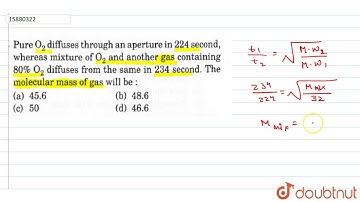 15880322
Pure O₂ diffuses through an aperture in 224 second,
whereas mixture of O₂ and another gas containing
80% O₂ diffuses from the same in 234 second. The
molecular mass of gas will be :
(a) 45.6 (b) 48.6
(c) 50 (d) 46.6
t₁/t₂ = √(M·W₂/M·W₁)
234/224 = √(Mmix/32)
Mmix = (
doubtnut